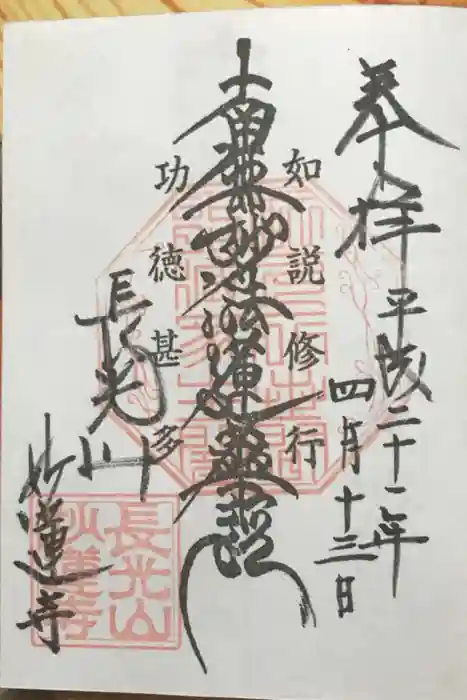 奉拝
平成二十二年
四月十三日
如説修行
南無妙法蓮華経
功徳甚多
長光山
妙蓮寺
長光山
妙蓮寺